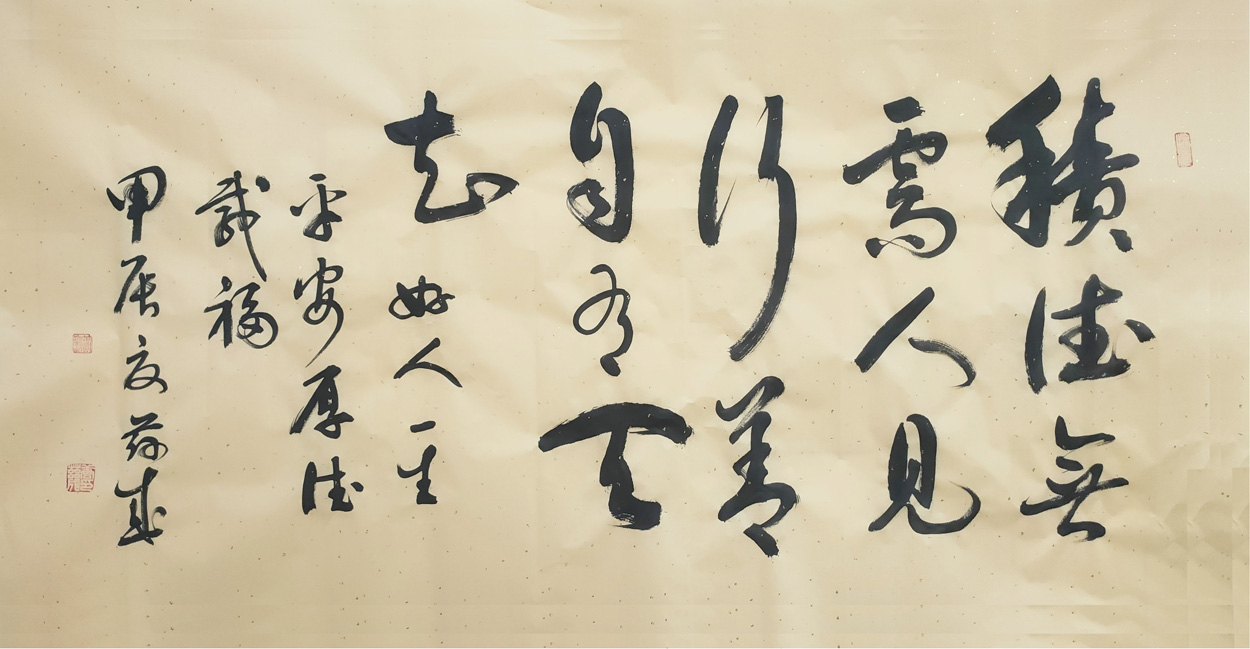 積德無
需人見
行善
自有天
知 好人一生
平安厚德
載福
甲辰夏